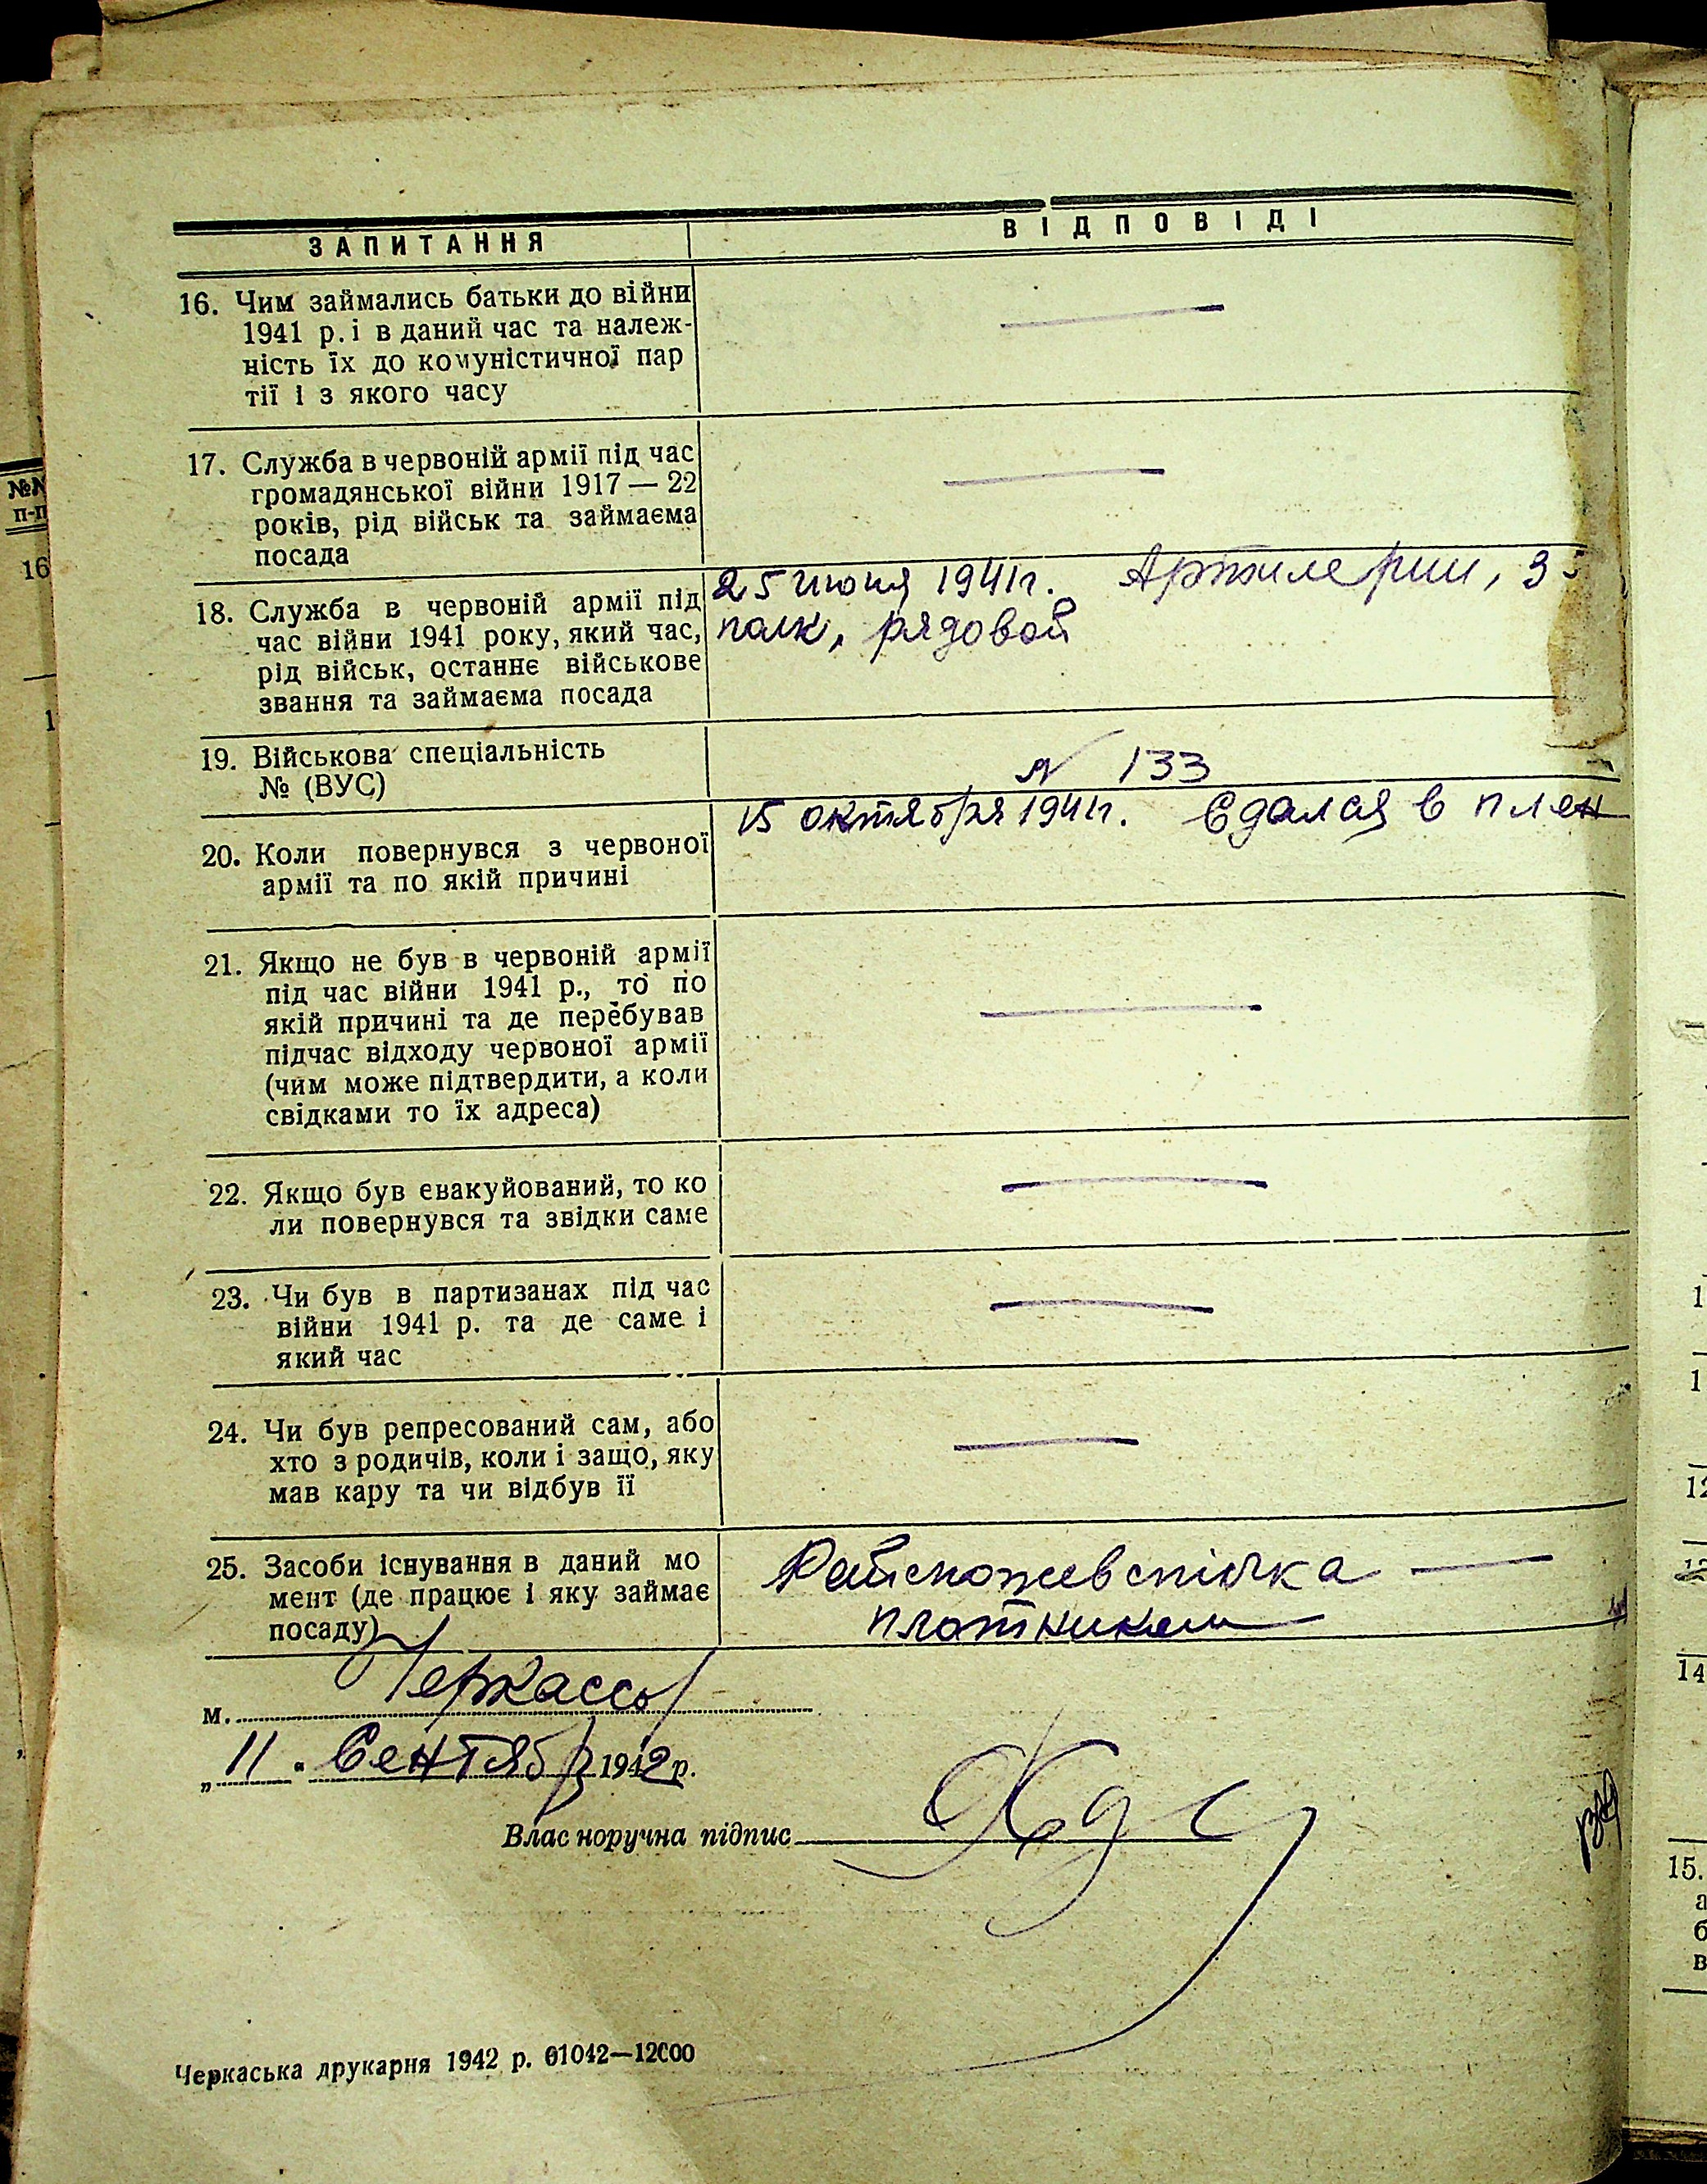 ЗАПИТАННЯ
ВІДПОВІДІ
16. Чим займались батьки до війни
1941 р. і в даний час та належ-
ність їх до комуністичної пар
тії і з якого часу
17. Служба в червоній армії під час
громадянської війни 1917 — 22
років, рід військ та займаєма
посада
18. Служба в червоній армії під
час війни 1941 року, який час,
рід військ, останнє військове
звання та займаєма посада
25 июня 1941г. Артилерии, 3
полк, рядовой
19. Військова спеціальність
№ (ВУС)
N 133
20. Коли повернувся з червоної
армії та по якій причині
15 октября 1941г. Сдался в плен
21. Якщо не був в червоній армії
під час війни 1941 р., то по
якій причині та де перебував
підчас відходу червоної армії
(чим може підтвердити, а коли
свідками то їх адреса)
22. Якщо був евакуйований, то ко
ли повернувся та звідки саме
23. Чи був в партизанах під час
війни 1941 р. та де саме і
який час
24. Чи був репресований сам, або
хто з родичів, коли і защо, яку
мав кару та чи відбув її
25. Засоби існування в даний мо
мент (де працює і яку займає
посаду)
Райспоживспілка —
плотником
м. Черкассы
„ 11 " Сентябр 1942 р.
Власноручна підпис
Черкаська друкарня 1942 р. 01042—12000
№№
п-п
16
1
1
1
12
14
15.
а
б
в